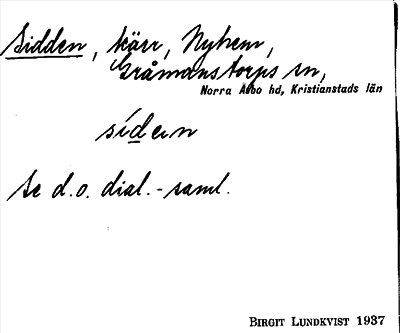 Sidden, kärr, Nyhem,
Gråmanstorps sn,
Norra Åsbo hd, Kristianstads län
síden
Se d.o. dial.-saml.
BIRGIT LUNDKVIST 1937